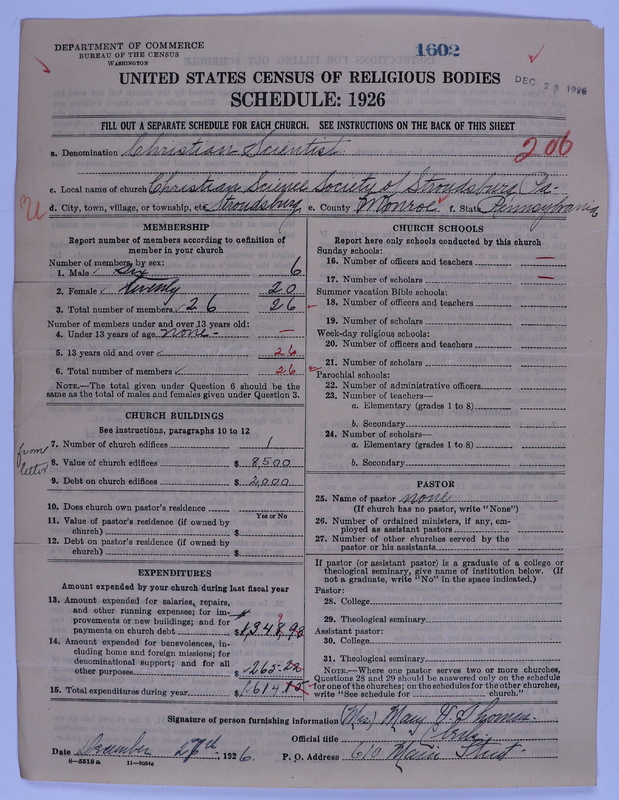 DEPARTMENT OF COMMERCE
BUREAU OF THE CENSUS
WASHINGTON
1602
DEC 28 1926
UNITED STATES CENSUS OF RELIGIOUS BODIES
SCHEDULE: 1926
FILL OUT A SEPARATE SCHEDULE FOR EACH CHURCH. SEE INSTRUCTIONS ON THE BACK OF THIS SHEET
a. Denomination Christian Scientist 206
c. Local name of church Christian Science Society of Stroudsburg Pa-
d. City, town, village, or township, etc. Stroudsburg e. County Monroe f. State Pennsylvania
MEMBERSHIP
Report number of members according to definition of
member in your church
Number of members by sex:
1. Male six 6
2. Female twenty 20
3. Total number of members 26 26
Number of members under and over 13 years old:
4. Under 13 years of age none -
5. 13 years old and over 26
6. Total number of members 26
NOTE.—The total given under Question 6 should be
same as the total of males and females given under Question 3.
CHURCH BUILDINGS
See instructions, paragraphs 10 to 12
from letter
7. Number of church edifices 1
8. Value of church edifices $ 8500
9. Debt on church edifices $ 2,000
10. Does church own pastor's residence
Yes or No
11. Value of pastor's residence (if owned by
church) $
12. Debt on pastor's residence (if owned by
church) $
EXPENDITURES
Amount expended by your church during last fiscal year
13. Amount expended for salaries, repairs,
and other running expenses; for im-
provements or new buildings; and for
payments on church debt $
14. Amount expended for benevolences, in-
cluding home and foreign missions; for
denominational support; and for all
other purposes $ 265-22
15. Total expenditures during year $
CHURCH SCHOOLS
Report here only schools conducted by this church
Sunday schools:
16. Number of officers and teachers —
17. Number of scholars —
Summer vacation Bible schools:
18. Number of officers and teachers
19. Number of scholars
Week-day religious schools:
20. Number of officers and teachers
21. Number of scholars
Parochial schools:
22. Number of administrative officers
23. Number of teachers—
a. Elementary (grades 1 to 8)
b. Secondary
24. Number of scholars—
a. Elementary (grades 1 to 8)
b. Secondary
PASTOR
25. Name of pastor none
(If church has no pastor, write "None")
26. Number of ordained ministers, if any, em-
ployed as assistant pastors
27. Number of other churches served by the
pastor or his assistants
If pastor (or assistant pastor) is a graduate of a college or
theological seminary, give name of institution below. (If
not a graduate, write "No" in the space indicated.)
Pastor:
28. College
29. Theological seminary
Assistant pastor:
30. College
31. Theological seminary
NOTE.—Where one pastor serves two or more churches,
Questions 28 and 29 should be answered only on the schedule
for one of the churches; on the schedules for the other churches,
write "See schedule for church."
Signature of person furnishing information (Mrs.) Mary
Official title Clerk
Date December 27th, 1926. P. O. Address 610 Main Street
8—5518a 11—9034a